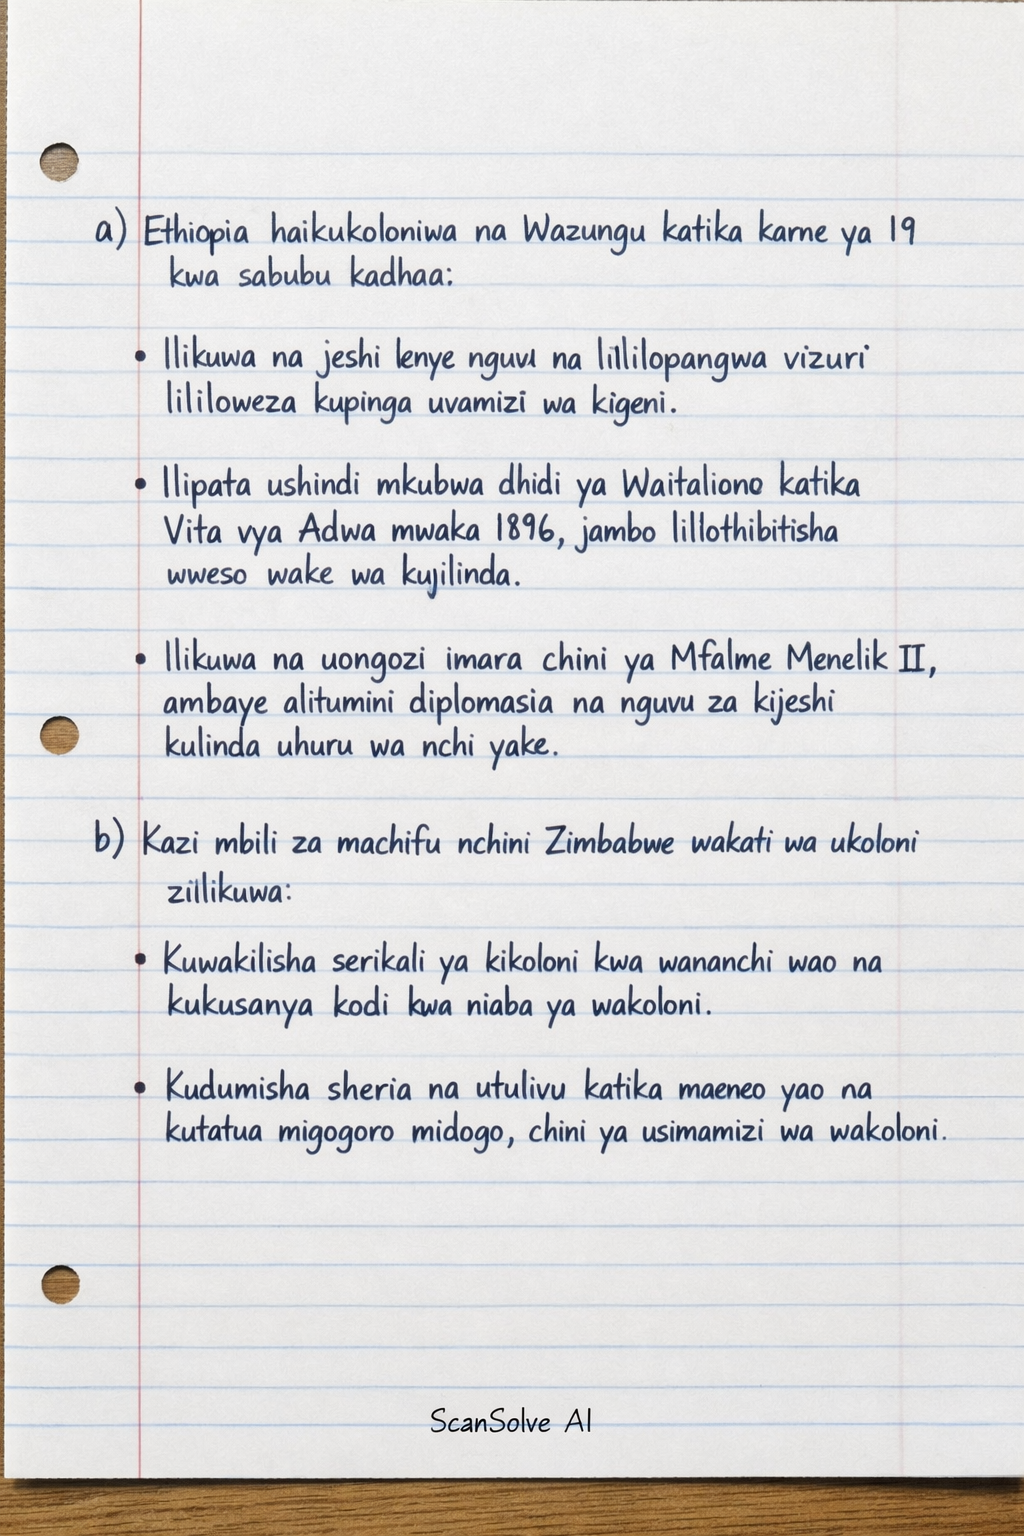 a) Ethiopia haikukoloniwa na Wazungu katika karne ya 19
kwa sabubu kadhaa:
• Ilikuwa na jeshi lenye nguvu na lillilopangwa vizuri
lililoweza kupinga uvamizi wa kigeni.
• Ilipata ushindi mkubwa dhidi ya Waitaliono katika
Vita vya Adwa mwaka 1896, jambo lillothibitisha
wweso wake wa kujilinda.
• Ilikuwa na uongozi imara chini ya Mfalme Menelik II,
ambaye alitumini diplomasia na nguvu za kijeshi
kulinda uhuru wa nchi yake.
b) Kazi mbili za machifu nchini Zimbabwe wakati wa ukoloni
zillikuwa:
• Kuwakilisha serikali ya kikoloni kwa wananchi wao na
kukusanya kodi kwa niaba ya wakoloni.
• Kudumisha sheria na utulivu katika maeneo yao na
kutatua migogoro midogo, chini ya usimamizi wa wakoloni.
ScanSolve AI